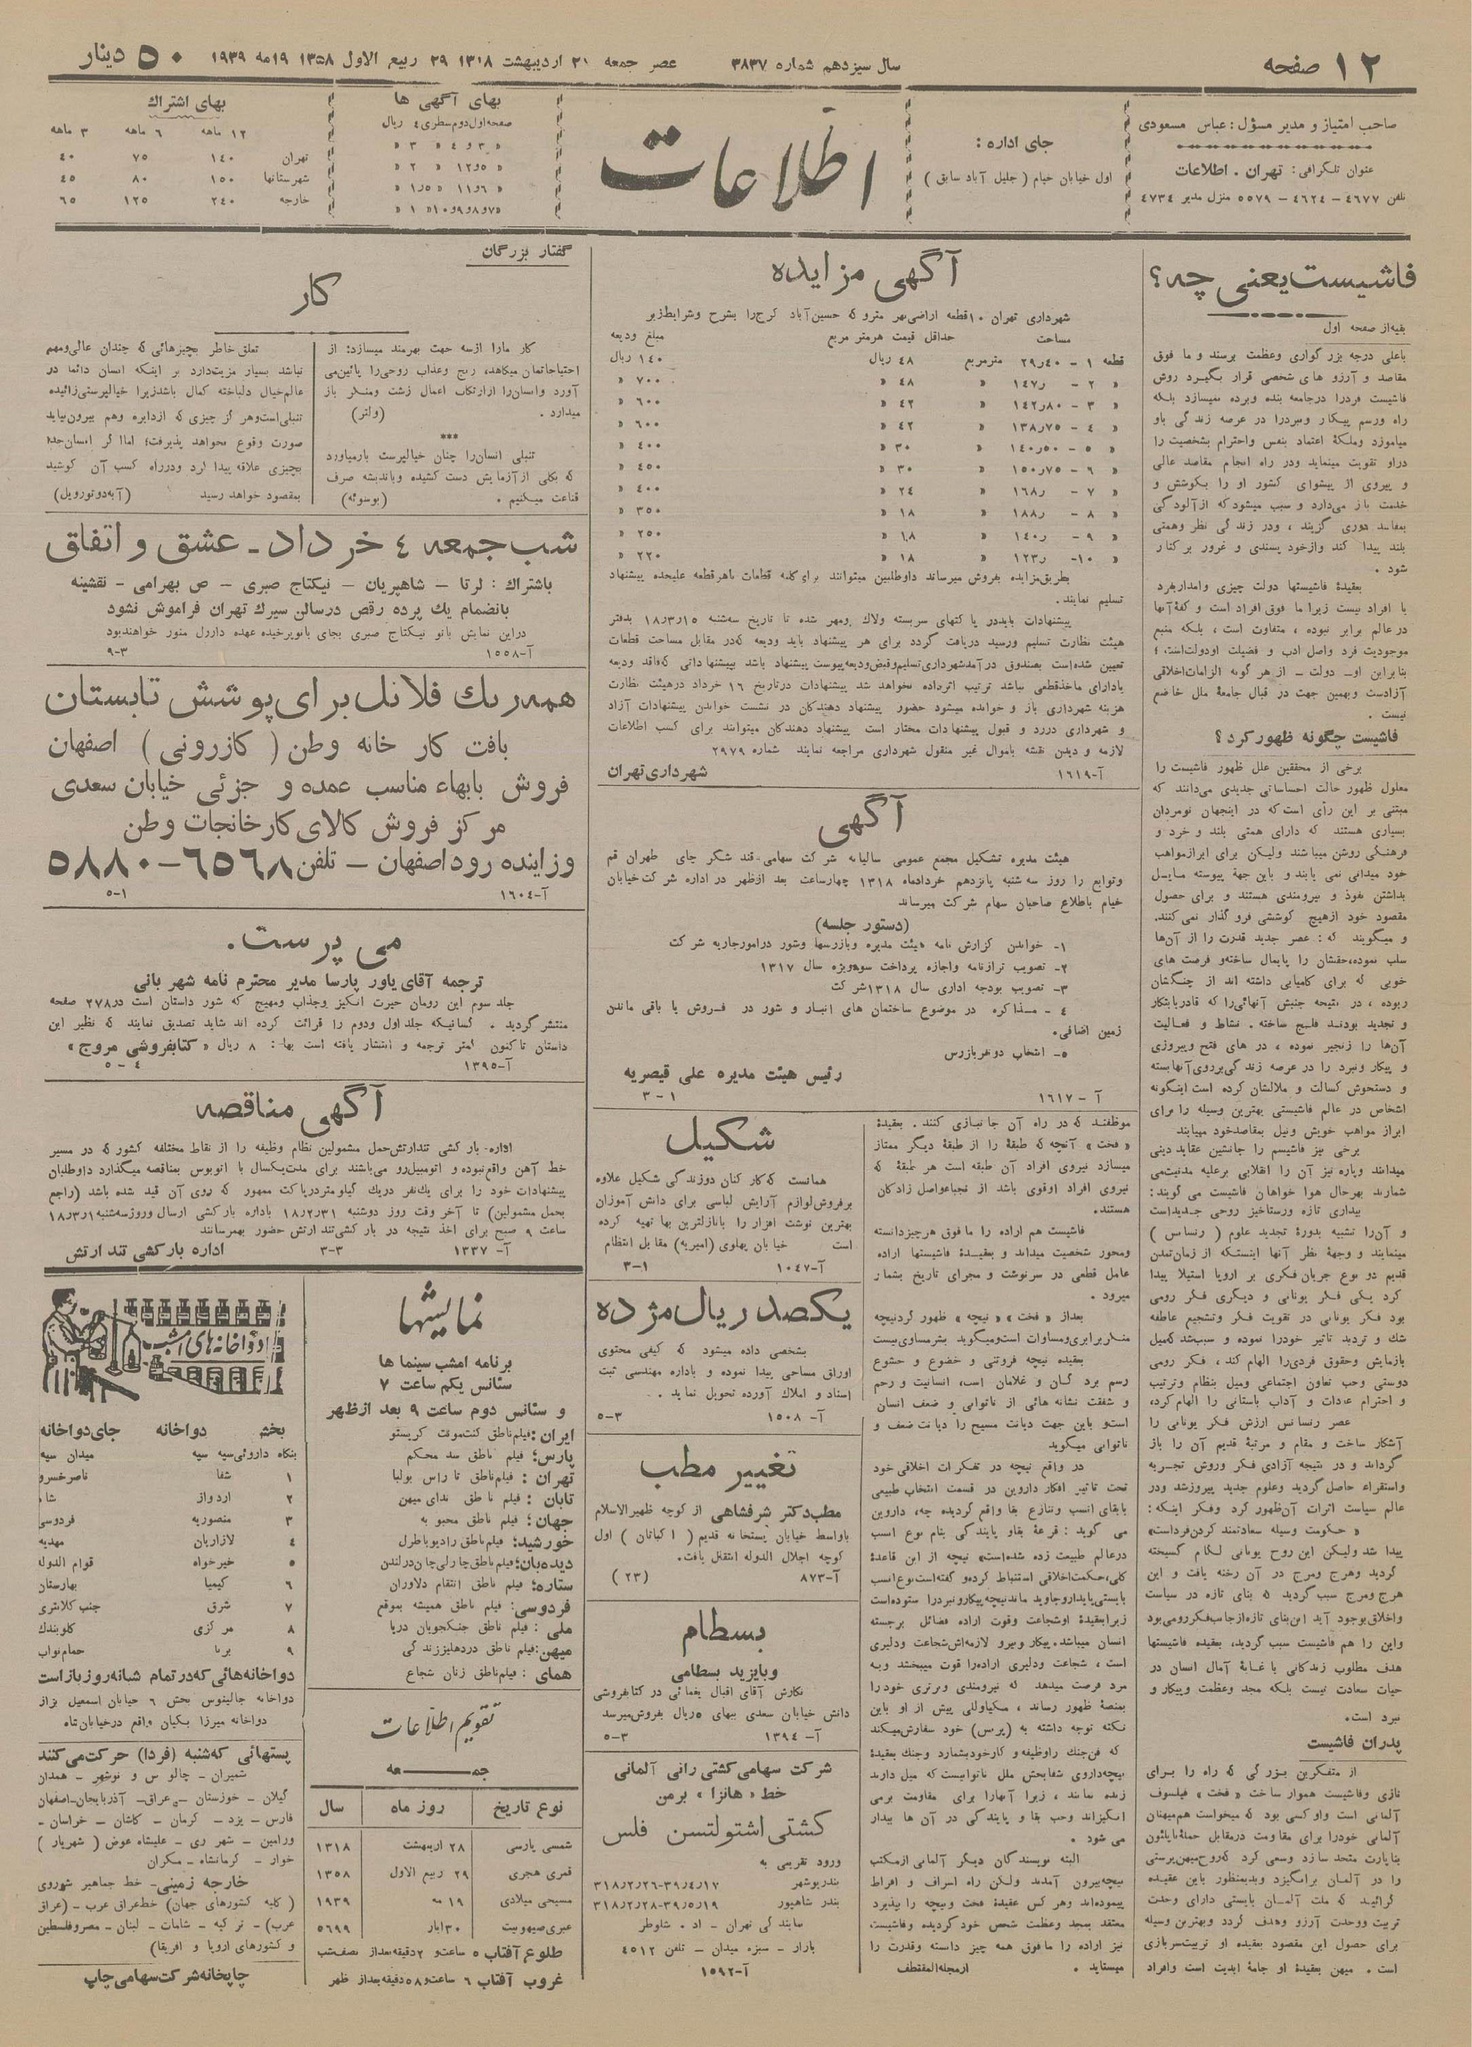 ۱۲ صفحه
سال سیزدهم شماره ۳۸۳۷
عصر جمعه
اردیبهشت ۱۳۱۸ ۲۹ ربیع الاول ۱۳۵۸ ۱۹ مه ۱۹۳۹
۵۰ دینار
صاحب امتیاز و مدیر مسؤل: عباس مسعودی
عنوان تلگرافی: تهران . اطلاعات
تلفن ۴۶۷۷ - ۴۶۲۴ - ۵۵۷۹ منزل مدیر ۴۷۳۴
جای اداره:
اول خیابان خیام ( جلیل آباد سابق )
اطلاعات
بهای آگهی ها
صفحه اول دوم سطری ٤ ریال
بهای اشتراك
۱۲ ماهه ۶ ماهه ۳ ماهه
تهران ۱۴۰ ۷۵ ۴۰
شهرستانها ۱۵۰ ۸۰ ۴۵
خارجه ۲۴۰ ۱۲۵ ۶۵
فاشیست یعنی چه؟
بقیه از صفحه اول
باعلی درجه بزرگواری وعظمت برسند و ما فوق
مقاصد و آرزو های شخصی قرار بگیرد روش
فاشیست فرد را درجامعه بنده وبرده نمیسازد بلکه
راه ورسم پیکار ونبرد را در عرصه زندگی باو
میاموزد وملکهٔ اعتماد بنفس واحترام بشخصیت را
دراو تقویت مینماید ودر راه انجام مقاصد عالی
و پیروی از پیشوای کشور او را بکوشش و
خدمت باز میدارد و سبب میشود که از آلودگی
بمفاسد دوری گزیند ، ودر زندگی نظر وهمتی
بلند پیدا کند وازخود پسندی و غرور برکنار
شود .
بعقیدهٔ فاشیستها دولت چیزی وامدار بفرد
یا افراد نیست زیرا ما فوق افراد است و کفهٔ آنها
در عالم برابر نبوده ، متفاوت است ، بلکه منبع
موجودیت فرد واصل ادب و فضیلت اودولت است ؛
بنابراین او - دولت - از هر گونه الزامات اخلاقی
آزادست وبهمین جهت در قبال جامعهٔ ملل خاضع
نیست .
فاشیست چگونه ظهور کرد ؟
برخی از محققین علل ظهور فاشیست را
معلول ظهور حالت احساساتی جدیدی می‌دانند که
مبتنی بر این رأی است که در اینجهان نومردان
بسیاری هستند که دارای همتی بلند و خرد و
فرهنگی روشن میباشند ولیکن برای ابراز مواهب
خود میدانی نمی یابند و باین جهة پیوسته مایل
بداشتن نفوذ و نیرومندی هستند و برای حصول
مقصود خود از هیچ کوششی فروگذار نمی کنند.
و میگویند که : عصر جدید قدرت را از آن‌ها
سلب نموده، حقشان را پایمال ساخته و فرصت های
خوبی که برای کامیابی داشته اند از چنگشان
ربوده ، در نتیجه جنبش آنهائی را که قادر بابتکار
و تجدید بودند فلج ساخته . نشاط و فعالیت
آن‌ها را زنجیر نموده ، در های فتح وپیروزی
و پیکار ونبرد را در عرصه زندگی بر روی آنها بسته
و دستخوش کسالت و ملالشان کرده است اینگونه
اشخاص در عالم فاشیستی بهترین وسیله را برای
ابراز مواهب خویش ونیل بمقاصد خود مییابند
برخی نیز فاشیسم را جانشین عقاید دینی
میدانند وپاره نیز آن را انقلابی برعلیه مدنیت می
شمارند بهرحال هوا خواهان فاشیست می گویند:
بیداری تازه ورستاخیز روحی جدید است
و آن را تشبیه بدورهٔ تجدید علوم ( رنساس )
مینمایند و وجههٔ نظر آنها اینستکه از زمان تمدن
قدیم دو نوع جریان فکری بر اروپا استیلا پیدا
کرد یکی فکر یونانی و دیگری فکر رومی
بود فکر یونانی در تقویت فکر وتشجیع عاطفه
شك و تردید تاثیر خود را نموده و سبب شد که میل
بازمایش وحقوق فردی را الهام کند ، فکر رومی
دوستی وحب تعاون اجتماعی ومیل بنظام وترتیب
و احترام عادات و آداب باستانی را الهام کرد،
عصر رنسانس ارزش فکر یونانی را
آشکار ساخت و مقام و مرتبهٔ قدیم آن را باز
گرداند و در نتیجه آزادی فکر وروش تجربه
واستقراء حاصل گردید وعلوم جدید پیروز شد ودر
عالم سیاست اثرات آن ظهور کرد وفکر اینکه :
« حکومت وسیله سعادتمند کردن فرد است»
پیدا شد ولیکن این روح یونانی لگام گسیخته
گردید وهرج ومرج در آن رخنه یافت و این
هرج ومرج سبب گردید که بنای تازه در سیاست
واخلاق بوجود آید این بنای تازه ازجانب فکر رومی بود
واین را هم فاشیست سبب گردید، بعقیده فاشیستها
هدف مطلوب زندگانی یا غایهٔ آمال انسان در
حیات سعادت نیست بلکه مجد وعظمت وپیکار و
نبرد است .
پدران فاشیست
از متفکرین بزرگی که راه را برای
نازی وفاشیست هموار ساخت « فخت » فیلسوف
آلمانی است واو کسی بود که میخواست هم‌میهنان
آلمانی خود را برای مقاومت درمقابل حملهٔ ناپلئون
بناپارت متحد سازد وسعی کرد که روح میهن پرستی
را در آلمان برانگیزد وبدینمنظور باین عقیده
گرائید که ملت آلمان بایستی دارای وحدت
تربیت ووحدت آرزو وهدف گردد وبهترین وسیله
برای حصول این مقصود بعقیده او تربیت سربازی
است . میهن بعقیدهٔ او جامهٔ ابدیت است وافراد
آگهی مزایده
شهرداری تهران ۱۰ قطعه اراضی نهر متروکه حسین آباد کرج را بشرح وشرایط زیر
مساحت حداقل قیمت هر متر مربع مبلغ ودیعه
قطعه ۱ - ۲۹٫۴۰ مترمربع ۴۸ ریال ۱۴۰ ریال
« ۲ - ۱۴۷٫ « ۴۸ « ۷۰۰ «
« ۳ - ۱۴۲٫۸۰ « ۴۲ « ۶۰۰ «
« ۴ - ۱۳۸٫۷۵ « ۴۲ « ۶۰۰ «
« ۵ - ۱۴۰٫۵۰ « ۳۰ « ۴۰۰ «
« ۶ - ۱۵۰٫۷۵ « ۳۰ « ۴۵۰ «
« ۷ - ۱۶۸٫ « ۲۴ « ۴۰۰ «
« ۸ - ۱۸۸٫ « ۱۸ « ۳۵۰ «
« ۹ - ۱۴۰٫ « ۱۸ « ۲۵۰ «
« ۱۰ - ۱۲۳٫ « ۱۸ « ۲۲۰ «
بطریق مزایده بفروش میرساند داوطلبین میتوانند برای کلیه قطعات یا هر قطعه علیحده پیشنهاد
تسلیم نمایند .
پیشنهادات باید در پاکتهای سربسته ولاك ومهر شده تا تاریخ سه‌شنبه ۱۸٫۳٫۱۵ بدفتر
هیئت نظارت تسلیم ورسید دریافت گردد برای هر پیشنهاد باید ودیعه که در مقابل مساحت قطعات
تعیین شده است بصندوق درآمد شهرداری تسلیم وقبض ودیعه پیوست پیشنهاد باشد بپیشنهاداتی که فاقد ودیعه
یا دارای ماخذ قطعی نباشد ترتیب اثر داده نخواهد شد پیشنهادات در تاریخ ۱۶ خرداد درهیئت نظارت
هزینه شهرداری باز و خوانده میشود حضور پیشنهاد دهندگان در نشست خواندن پیشنهادات آزاد
و شهرداری در رد و قبول پیشنهادات مختار است پیشنهاد دهندگان میتوانند برای کسب اطلاعات
لازمه و دیدن نقشه باموال غیر منقول شهرداری مراجعه نمایند شماره ۲۹۷۹
آ-۱۶۱۹ شهرداری تهران
آگهی
هیئت مدیره تشکیل مجمع عمومی سالیانه شرکت سهامی قند شکر چای طهران قم
وتوابع را روز سه شنبه پانزدهم خردادماه ۱۳۱۸ چهارساعت بعد ازظهر در اداره شرکت خیابان
خیام باطلاع صاحبان سهام شرکت میرساند
(دستور جلسه)
۱- خواندن گزارش نامه هیئت مدیره وبازرسها وشور درامورجاریه شرکت
۲- تصویب ترازنامه واجازه پرداخت سود ویژه سال ۱۳۱۷
۳- تصویب بودجه اداری سال ۱۳۱۸ شرکت
۴ - مذاکره در موضوع ساختمان های انبار و شور در فروش یا باقی ماندن
زمین اضافی .
۵- انتخاب دونفر بازرس
رئیس هیئت مدیره علی قیصریه
آ - ۱۶۱۷ ۱ - ۳
موظفند که در راه آن جانبازی کنند . بعقیدهٔ
« فخت » آنچه که طبقهٔ را از طبقهٔ دیگر ممتاز
میسازد نیروی افراد آن طبقه است هر طبقهٔ که
نیروی افراد اوقوی باشد از نجبا واصل زادگان
هستند.
فاشیست هم اراده را مافوق هرچیز دانسته
ومحور شخصیت میداند و بعقیدهٔ فاشیستها اراده
عامل قطعی در سرنوشت و مجرای تاریخ بشمار
میرود .
بعداز « فخت » « نیچه » ظهور کرد نیچه
منکر برابری ومساوات است ومیگوید بشر مساوی نیست
بعقیده نیچه فروتنی و خضوع و خشوع
رسم بردگان و غلامان است، انسانیت و رحم
و شفقت نشانه هائی از ناتوانی و ضعف انسان
است و باین جهت دیانت مسیح را دیانت ضعف و
ناتوانی میگوید
در واقع نیچه در تفکرات اخلاقی خود
تحت تاثیر افکار داروین در قسمت انتخاب طبیعی
یا بقای انسب وتنازع بقا واقع گردیده چه، داروین
می گوید : قرعهٔ بقاو پایندگی بنام نوع انسب
درعالم طبیعت زده شده است» نیچه از این قاعدهٔ
کلی، حکمت اخلاقی استنباط کرده و گفته است نوع انسب
بایستی پایدار وجاوید ماند نیچه پیکار ونبرد را ستوده است
زیرا بعقیدهٔ اوشجاعت وقوت اراده فضائل برجسته
انسان میباشد. پیکار ونبرد لازمه اش شجاعت ودلیری
است ، شجاعت ودلیری اراده را قوت میبخشد وبه
مرد فرصت میدهد که نیرومندی وبرتری خود را
بمنصهٔ ظهور رساند ، مکیاوللی پیش از او باین
نکته توجه داشته به (پرس) خود سفارش میکند
که فن جنك را وظیفه و کار خود بشمارد وجنك بعقیدهٔ
نیچه داروی شفابخش ملل ناتوانیست که میل دارند
زنده بمانند ، زیرا آنها را برای مقاومت برمی
انگیزاند وحب بقا و پایندگی در آن ها بیدار
می شود .
البته نویسندگان دیگر آلمانی از مکتب
نیچه بیرون آمدند ولیکن راه اسراف و افراط
پیموده اند وهر کس عقیدهٔ فخت ونیچه را پذیرد
معتقد بمجد وعظمت شخص خود گردیده وفاشیست
نیز اراده را مافوق همه چیز دانسته وقدرت را
میستاید . ازمجله المقتطف
شکیل
همانست که کارکنان دوزندگی شکیل علاوه
برفروش لوازم آرایش لباسی برای دانش آموزان
بهترین نوشت افزار را بانازلترین بها تهیه کرده
است خیابان پهلوی (امیریه) مقابل انتظام
آ-۱۰۴۷ ۱-۳
یکصد ریال مژده
بشخصی داده میشود که کیفی محتوی
اوراق مساحی پیدا نموده و باداره مهندسی ثبت
اسناد و املاك آورده تحویل نماید .
آ- ۱۵۰۸ ۳-۵
تغییر مطب
مطب دکتر شرفشاهی از کوچه ظهیرالاسلام
باواسط خیابان پستخانه قدیم ( اکباتان ) اول
کوچه اجلال الدوله انتقال یافت.
آ-۸۷۳ (۲۳)
بسطام
وبایزید بسطامی
نگارش آقای اقبال یغمائی در کتابفروشی
دانش خیابان سعدی ببهای ۵ ریال بفروش میرسد
آ- ۱۳۹۴ ۳-۵
شرکت سهامی کشتی رانی آلمانی
خط « هانزا » برمن
کشتی اشتولتسن فلس
ورود تقریبی به
بندر بوشهر ۳۱۸٫۲٫۲۶-۳۹٫۴٫۱۷
بندر شاهپور ۳۱۸٫۲٫۲۸-۳۹٫۵٫۱۹
نمایندگی تهران - اد . شاوطر
بازار - سبزه میدان - تلفن ۴۵۱۲
آ-۱۵۹۲
گفتار بزرگان
کار
کار مارا ازسه جهت بهرمند میسازد: از
احتیاجاتمان میکاهد، رنج وعذاب روحی را پائین می
آورد وانسان را از ارتکاب اعمال زشت ومنکر باز
میدارد . (ولتر)
***
تنبلی انسان را چنان خیالپرست بارمیاورد
که بکلی از آزمایش دست کشیده وباندیشه صرف
قناعت میکنیم . (بوسوئه)
تعلق خاطر بچیزهائی که چندان عالی ومهم
نباشد بسیار مزیت دارد بر اینکه انسان دائما در
عالم خیال دلباخته کمال باشد زیرا خیالپرستی زائیده
تنبلی است وهر گز چیزی که از دایره وهم بیرون نیاید
صورت وقوع نخواهد پذیرفت؛ اما اگر انسان جدا
بچیزی علاقه پیدا کرد ودرراه کسب آن کوشید
بمقصود خواهد رسید (آبه دوتورویل)
شب جمعه ٤ خرداد - عشق و اتفاق
باشتراك : لرتا - شاهپریان - نیکتاج صبری - ص بهرامی - نقشینه
بانضمام یك پرده رقص درسالن سیرك تهران فراموش نشود
دراین نمایش بانو نیکتاج صبری بجای بانو پرخیده عهده دار رل منور خواهند بود
آ-۱۵۵۸ ۳-۹
همه رنك فلانل برای پوشش تابستان
بافت کار خانه وطن ( کازرونی ) اصفهان
فروش بابهاء مناسب عمده و جزئی خیابان سعدی
مرکز فروش کالای کارخانجات وطن
وزاینده رود اصفهان - تلفن ۶۵۶۸-۵۸۸۰
آ-۱۶۰۴ ۱-۵
می پرست.
ترجمه آقای یاور پارسا مدیر محترم نامه شهربانی
جلد سوم این رومان حیرت انگیز وجذاب ومهیج که شور داستان است در ۲۷۸ صفحه
منتشر گردید . کسانیکه جلد اول ودوم را قرائت کرده اند شاید تصدیق نمایند که نظیر این
داستان تاکنون کمتر ترجمه و انتشار یافته است بها: ۸ ریال «کتابفروشی مروج»
آ-۱۳۹۵ ۴ - ۵
آگهی مناقصه
اداره بارکشی تندارتش حمل مشمولین نظام وظیفه را از نقاط مختلفه کشور که در مسیر
خط آهن واقع نبوده و اتومبیل رو می‌باشند برای مدت یکسال با اتوبوس بمناقصه میگذارد داوطلبان
پیشنهادات خود را برای یك نفر در یك کیلومتر درپاکت ممهور که روی آن قید شده باشد (راجع
بحمل مشمولین) تا آخر وقت روز دوشنبه ۱۸٫۲٫۳۱ باداره بارکشی ارسال وروز سه‌شنبه ۱۸٫۳٫۱
ساعت ۹ صبح برای اخذ نتیجه در بارکشی تند ارتش حضور بهمرسانند
آ- ۱۳۳۷ ۳-۳ اداره بارکشی تند ارتش
نمایشها
برنامه امشب سینما ها
سئانس یکم ساعت ۷
و سئانس دوم ساعت ۹ بعد ازظهر
ایران : فیلم ناطق کنت مونت کریستو
پارس : فیلم ناطق سد محکم
تهران : فیلم ناطق تاراس بولبا
تابان : فیلم ناطق ندای میهن
جهان : فیلم ناطق محبوبه
خورشید : فیلم ناطق رادیو پاطرل
دیده‌بان : فیلم ناطق چارلی چان در لندن
ستاره : فیلم ناطق انتقام دلاوران
فردوسی : فیلم ناطق همیشه بموقع
ملی : فیلم ناطق جنگجویان دریا
میهن : فیلم ناطق دردهلیز زندگی
همای : فیلم ناطق زنان شجاع
تقویم اطلاعات
جمعه
نوع تاریخ روز ماه سال
شمسی پارسی ۲۸ اردیبهشت ۱۳۱۸
قمری هجری ۲۹ ربیع الاول ۱۳۵۸
مسیحی میلادی ۱۹ مه ۱۹۳۹
عبری صیهونیت ۳۰ ایار ۵۶۹۹
طلوع آفتاب ۵ ساعت و ۲ دقیقه بعداز نصف شب
غروب آفتاب ۶ ساعت و ۵۸ دقیقه بعداز ظهر
دواخانه‌های امشب
بخش دواخانه جای دواخانه
بنگاه داروئی سپه سپه میدان سپه
۱ شفا ناصرخسرو
۲ اردواز شاه
۳ منصوریه فردوسی
۴ لازاریان مهدیه
۵ خیرخواه قوام الدوله
۶ کیمیا بهارستان
۷ شرق جنب کلانتری
۸ مرکزی گلوبندك
۹ برنا حمام نواب
دواخانه هائی که در تمام شبانه روز باز است
دواخانه جالینوس بخش ۶ خیابان اسمعیل بزاز
دواخانه میرزا یگیان واقع درخیابان شاه
پستهائی که شنبه (فردا) حرکت می کنند
شمیران - چالوس و نوشهر - همدان
گیلان - خوزستان - عراق - آذربایجان - اصفهان
فارس - یزد - کرمان - کاشان - خراسان -
ورامین - شهر ری - علیشاه عوض ( شهریار )
خوار - کرمانشاه - مکران
خارجه زمینی - خط جماهیر شوروی
( کلیه کشورهای جهان ) خط عراق عرب - (عراق
عرب) - ترکیه - شامات - لبنان - مصر وفلسطین
و کشورهای اروپا و افریقا)
چاپخانه شرکت سهامی چاپ